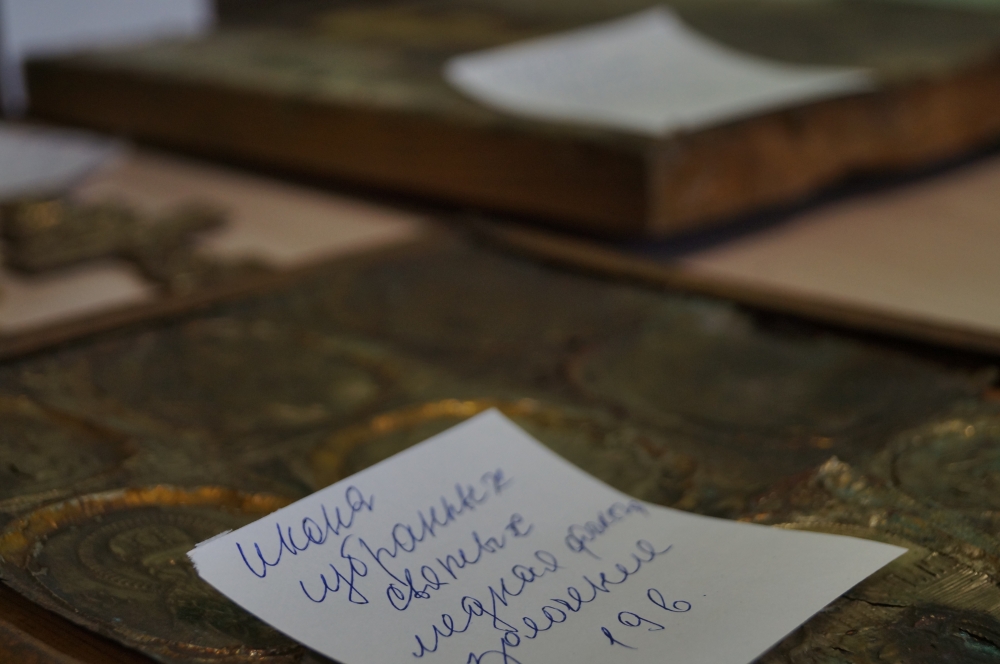 икона
избранных
святых
медная фольг
золочение
19 в